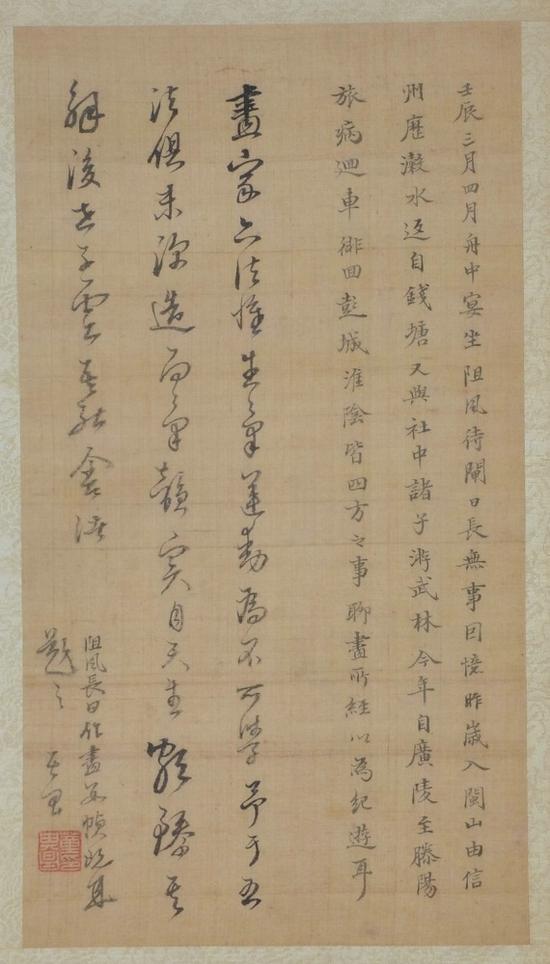 壬辰三月四月舟中宴坐阻風待閘日長無事回憶昨歲入閩山由信
州歷瀫水返自錢塘又與社中諸子游武林今年自廣陵至滕陽
旅病迴車徘回彭城淮陰皆四方之事聊畫所經以為紀遊耳
畫家六法惟生氣運動為不可學予于五
法俱未深造而氣韻實自天生頗臻其
解後世子雲其能
阻風長日作畫若幀既成
題之其昌